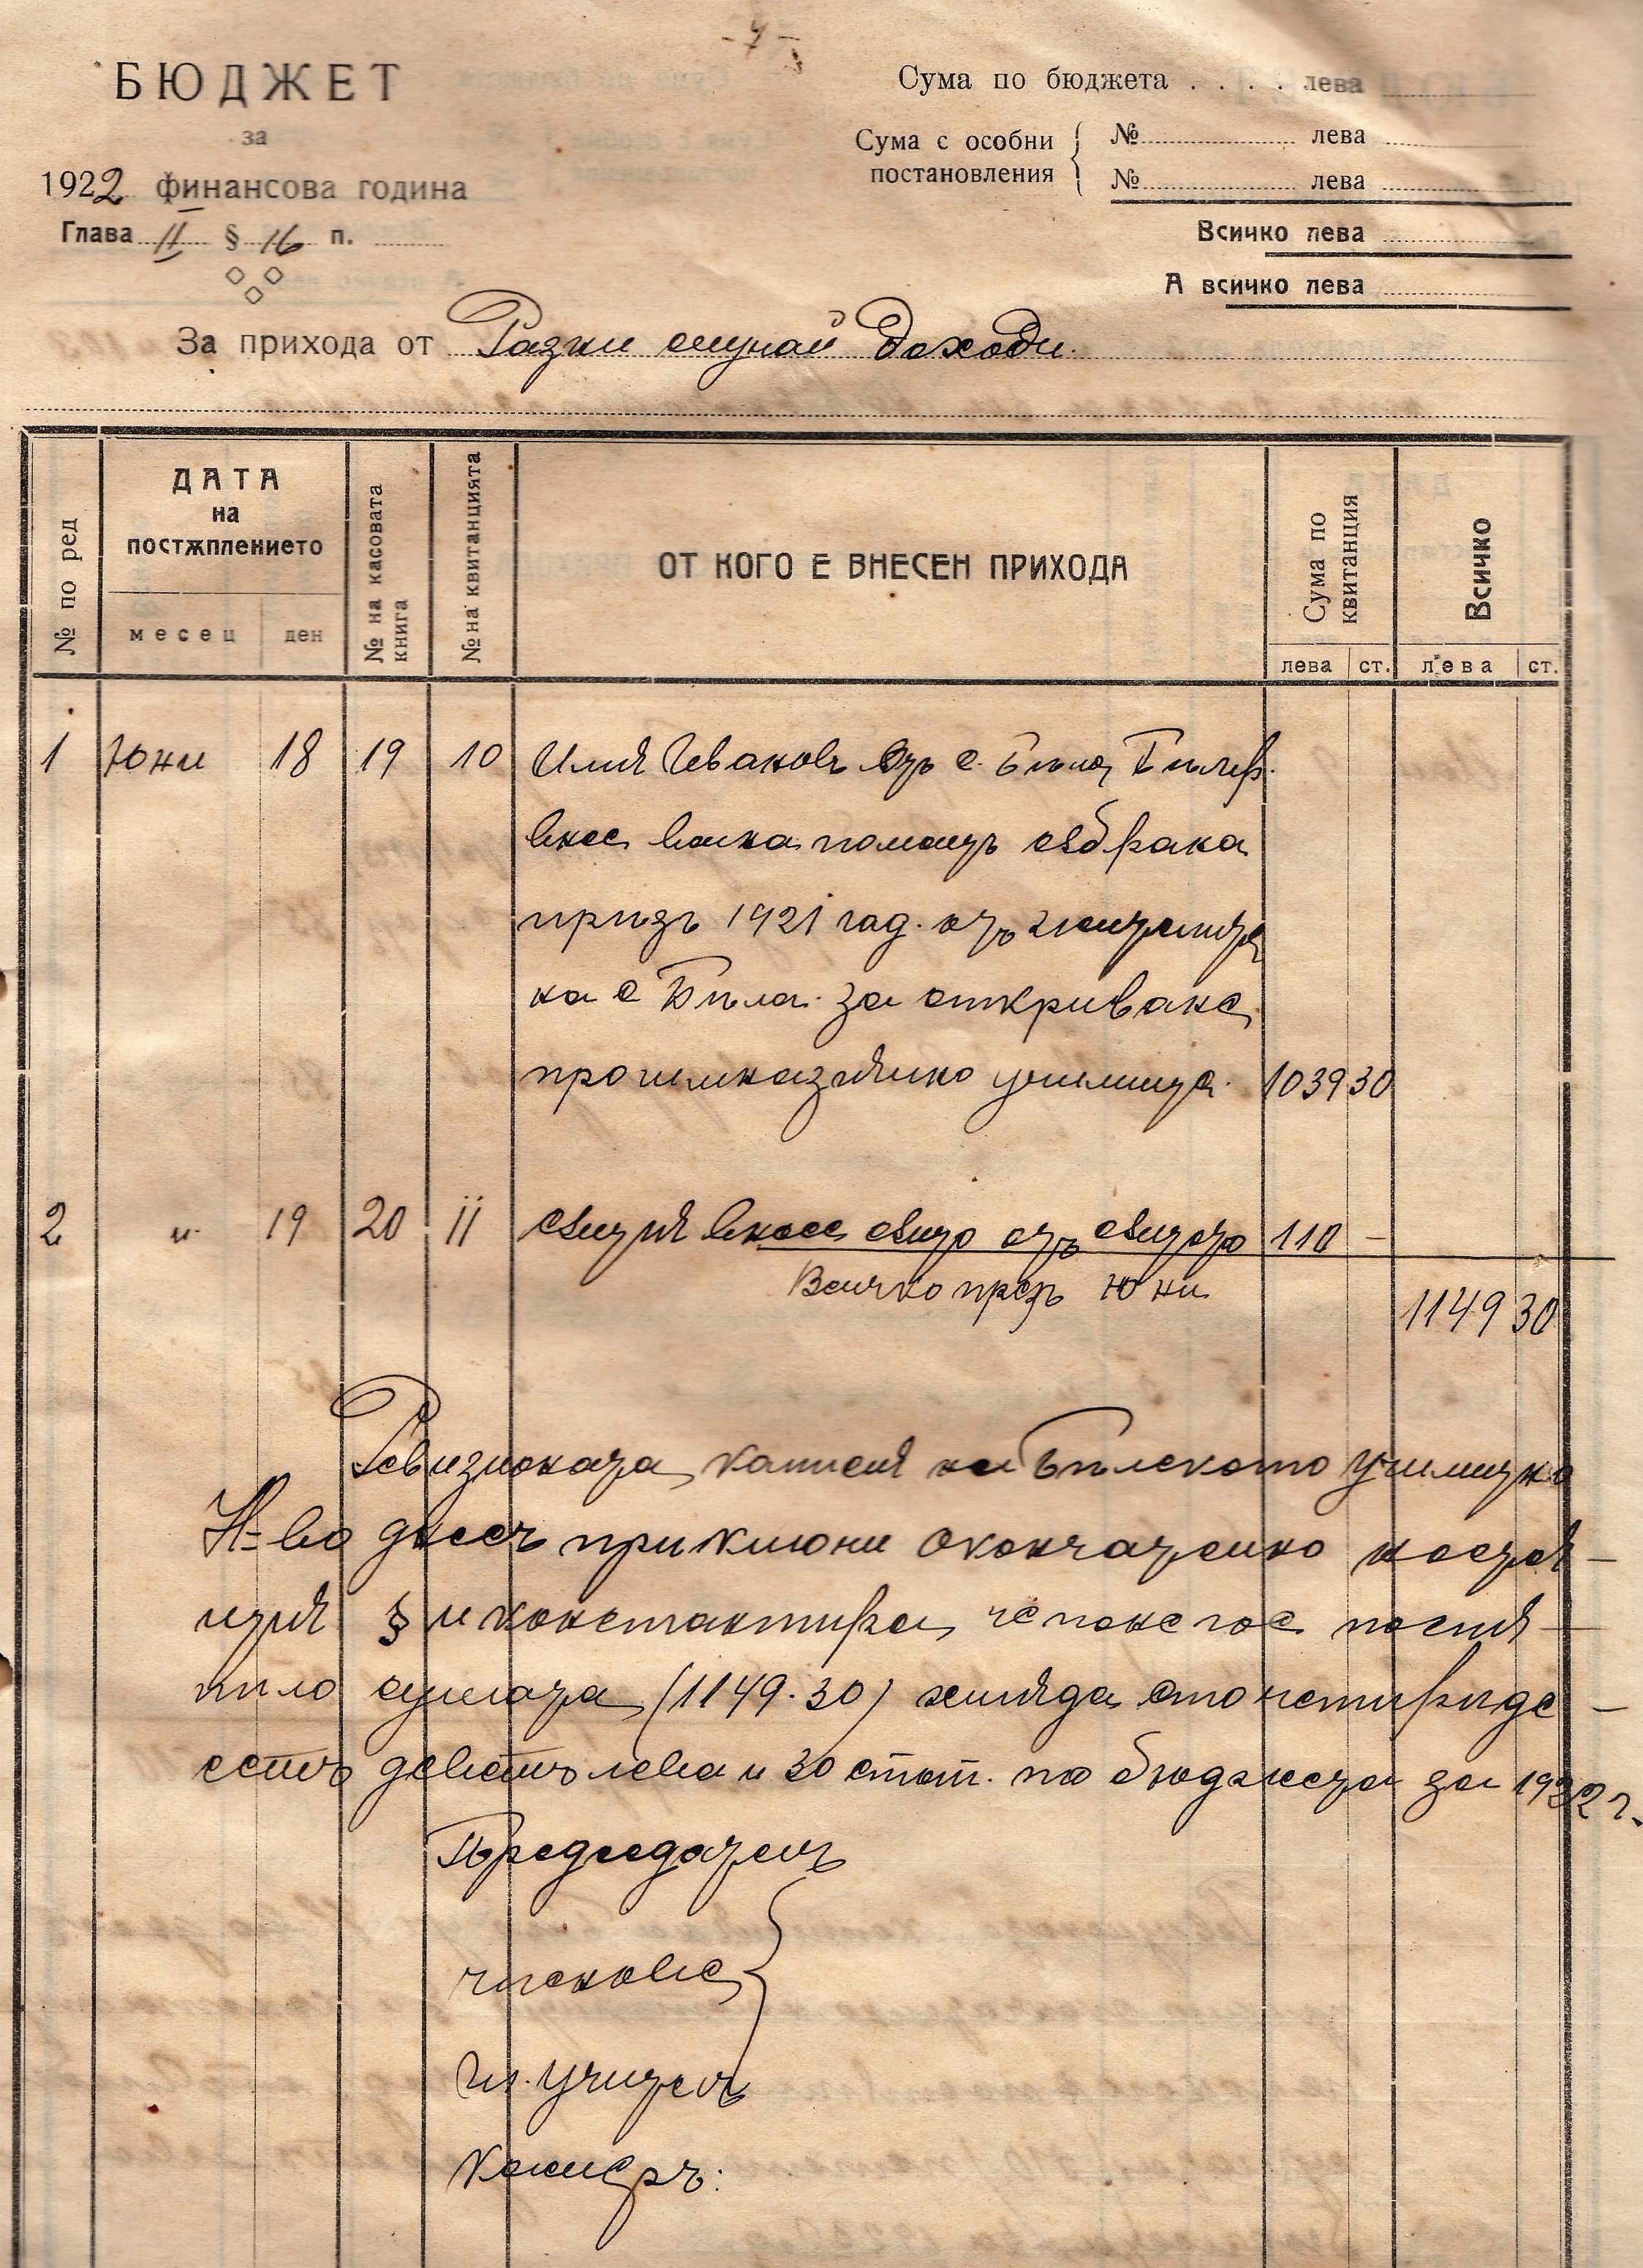 - 7 -
БЮДЖЕТ
за
1922 финансова година
Глава II § 16 п.
Сума по бюджета . . . . лева
Сума с особни постановления
№ лева
№ лева
Всичко лева
А всичко лева
За прихода от Разни случай доходи.
№ по ред
ДАТА
на
постѫплението
месец ден
№ на касовата книга
№ на квитанцията
ОТ КОГО Е ВНЕСЕН ПРИХОДА
Сума по квитанция
лева ст.
Всичко
лева ст.
1 Юни 18 19 10 Илия Ивановъ отъ с. Бѣла
внесе помощь събрана
прѣзъ 1921 год. отъ жителитѣ
на с Бѣла за откриване
прогимназиално училище. 1039 30
2 " 19 20 11 Същия внесе също отъ същото 110 -
Всичко прѣзъ Юни
1149 30
Ревизионата комисия на Бѣлското училищно
Н-во днесъ приключи окончателно настоя-
щия § и константира, че по него е постѫ-
пило сумата (1149.30) хиляда сто четирӣде-
сеть деветь лева и 30 стот. по бюджета за 1922 г.
Прѣдседатель
членове
Гл. Учитель
Касиеръ: